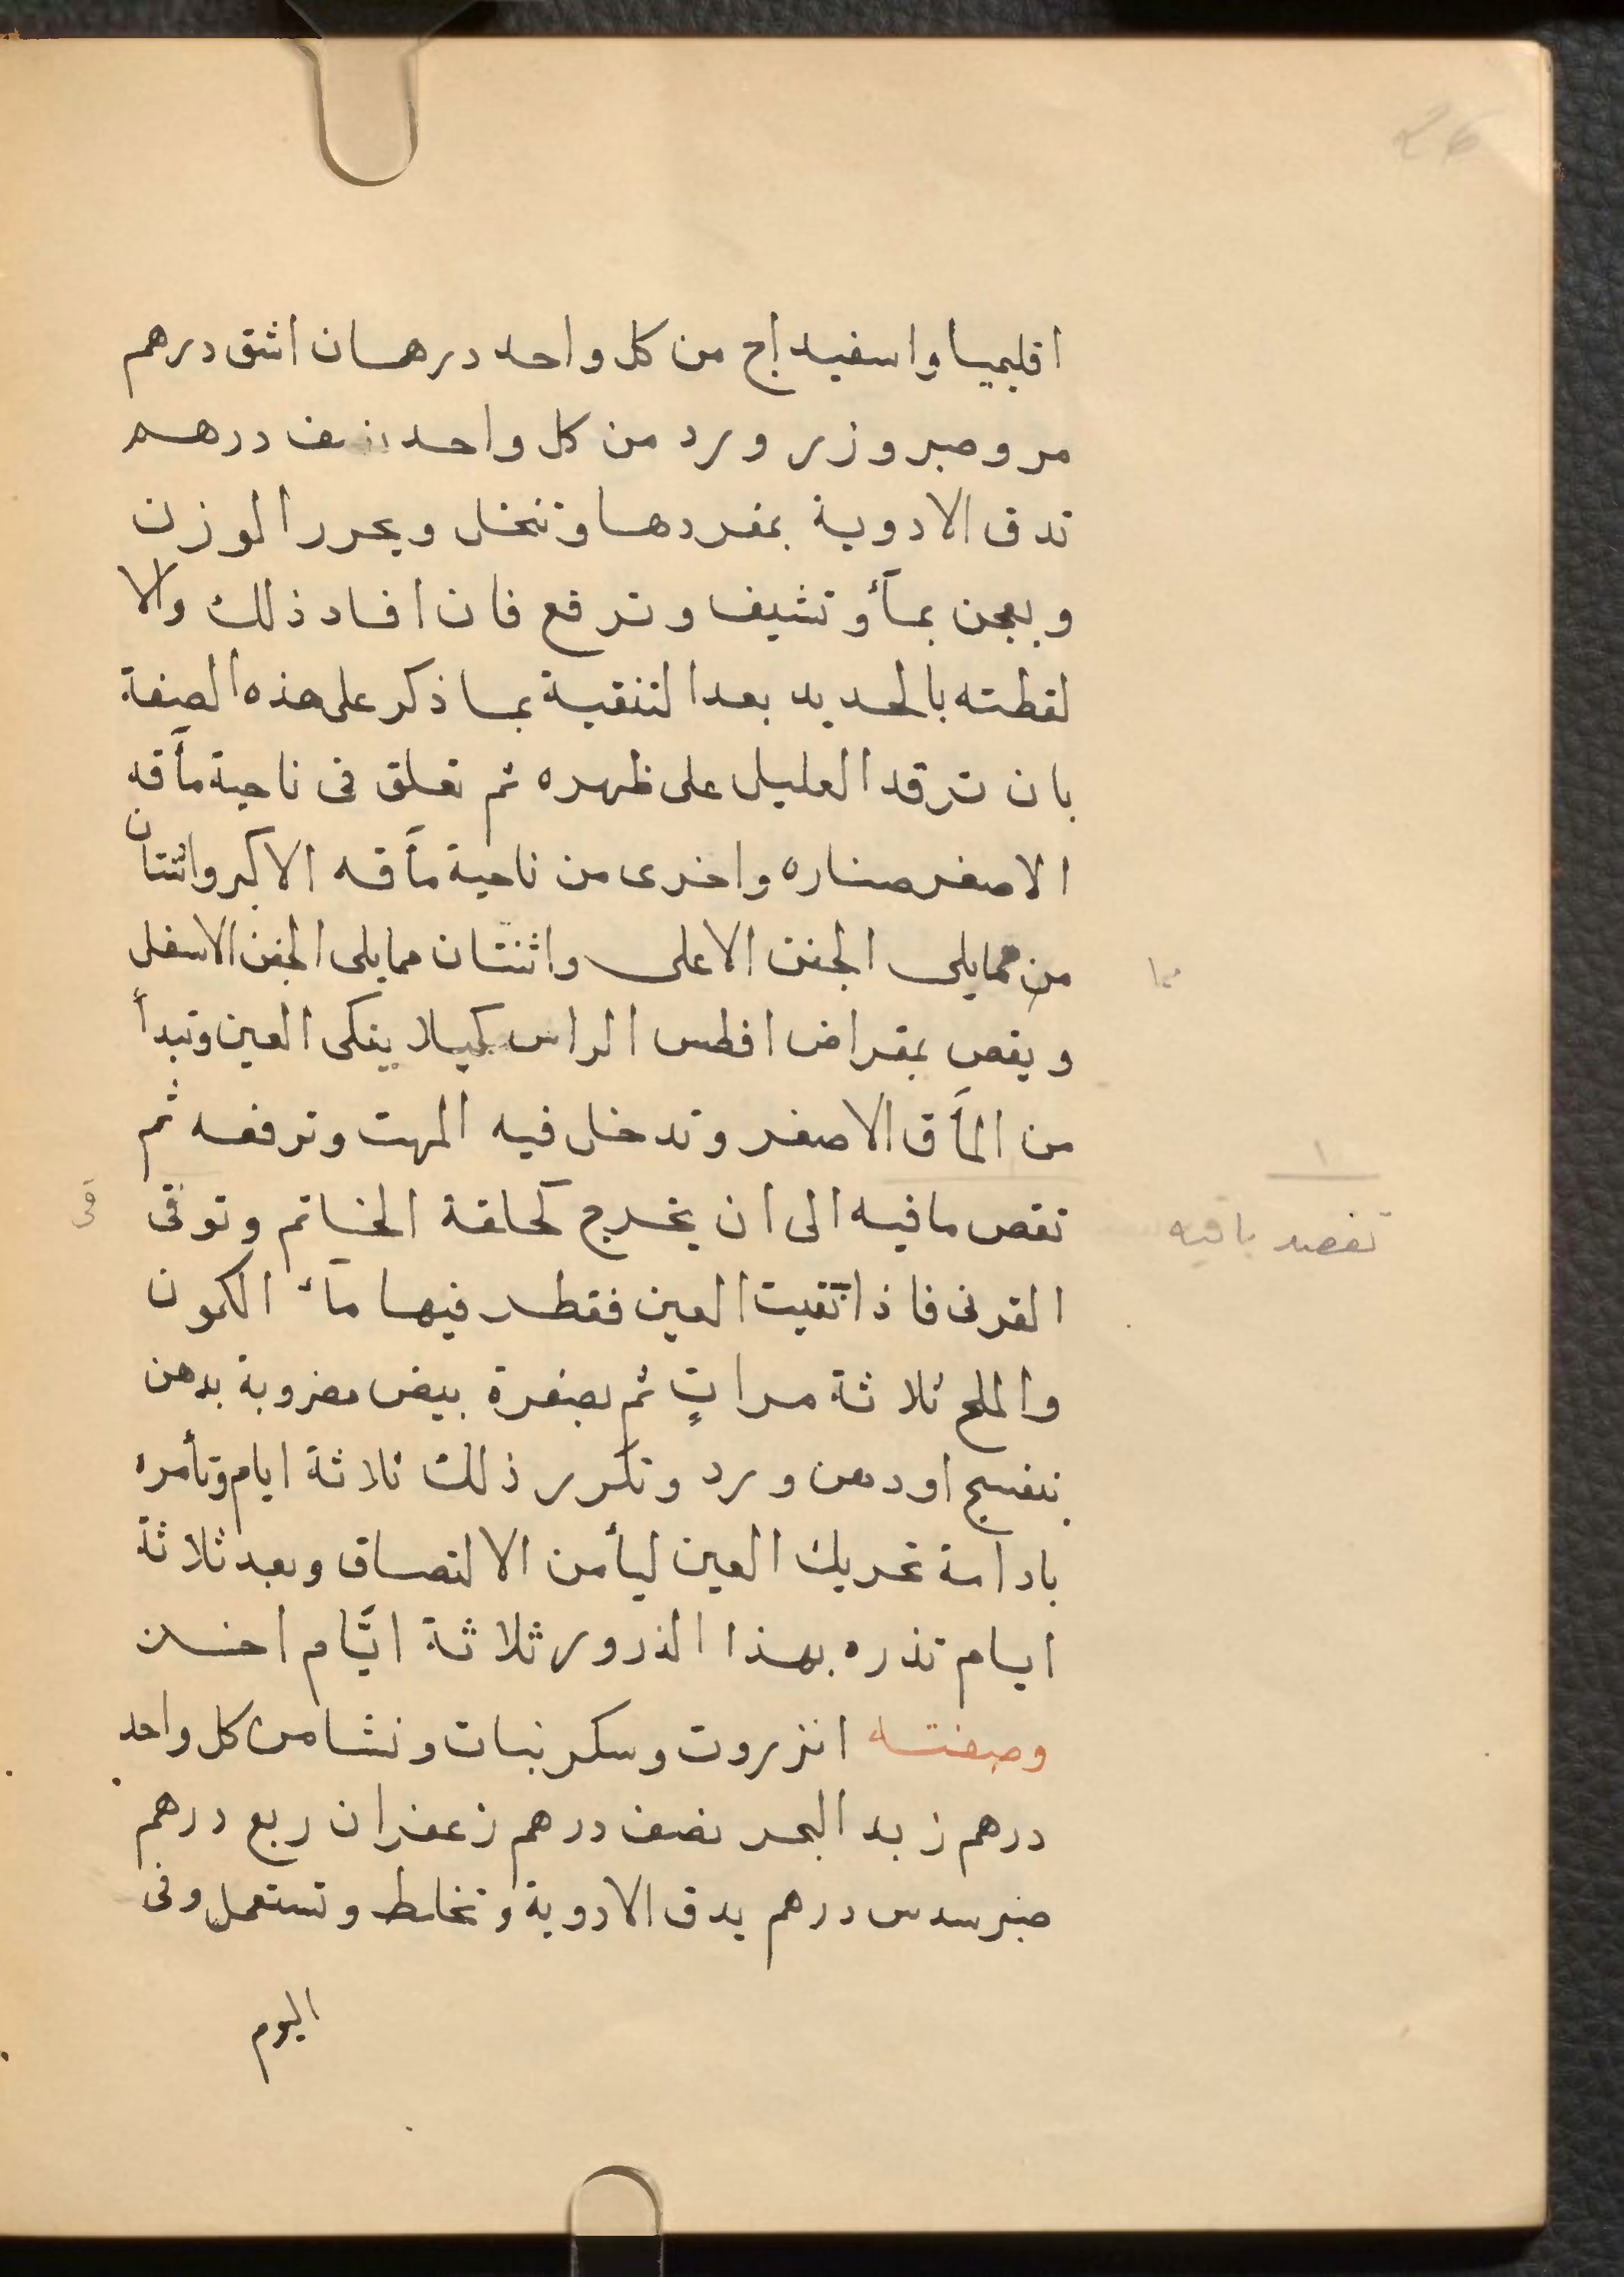 26
اقليميا واسفيداج من كل واحد درهمان اشق درهم
مر وصبر وزر ورد من كل واحد نصف درهم
تدق الادوية بمفردها وتنخل ويحرر الوزن
ويعجن بمآء وتشيف وترفع فان افاد ذلك والا
لقطته بالحديد بعد التنقية بما ذكر على هذه الصفة
بان ترقد العليل على ظهره ثم تعلق فى ناحية مأقه
الاصغر صناره واخرى من ناحية مأقه الاكبر واثنتان
من ممايلى الجفن الاعلى واثنتان ممايلى الجفن الاسفل
مما
ويقص بمقراض افطس الراس كيلا ينكى العين وتبدأ
من المأق الاصغر وتدخل فيه المهت وترفعه ثم
١
تقص مافيه الى ان يخرج كحلقة الخاتم وتوقى
تفصد باقيه
قى
القرنى فاذا نقيت العين فقطر فيها مآء الكمون
والملح ثلاثة مراتٍ ثم بصفرة بيض مضروبة بدهن
بنفسج اودهن ورد وتكرر ذلك ثلاثة ايام وتأمره
بادامة تحريك العين ليأمن الالتصاق وبعد ثلاثة
ايام تذره بهذا الذرور ثلاثة ايَّام اخر
وصفته انزروت وسكر نبات ونشا من كل واحد
درهم زبد البحر نصف درهم زعفران ربع درهم
صبر سدس درهم يدق الادوية وتخلط وتستعمل وفى
اليوم